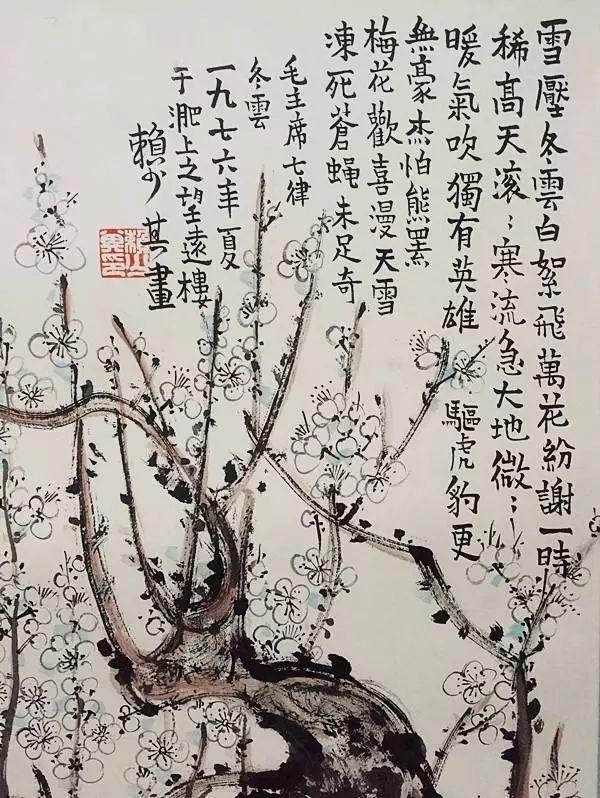 雪壓冬雲白絮飛萬花紛謝一時
稀高天滚:寒流急大地微:
暖氣吹獨有英雄驅虎豹更
無豪杰怕熊罴
梅花歡喜漫天雪
凍死蒼蝇未足奇
毛主席七律
冬雲
一九七六年夏
于淝上之望遠樓
賴少其畫